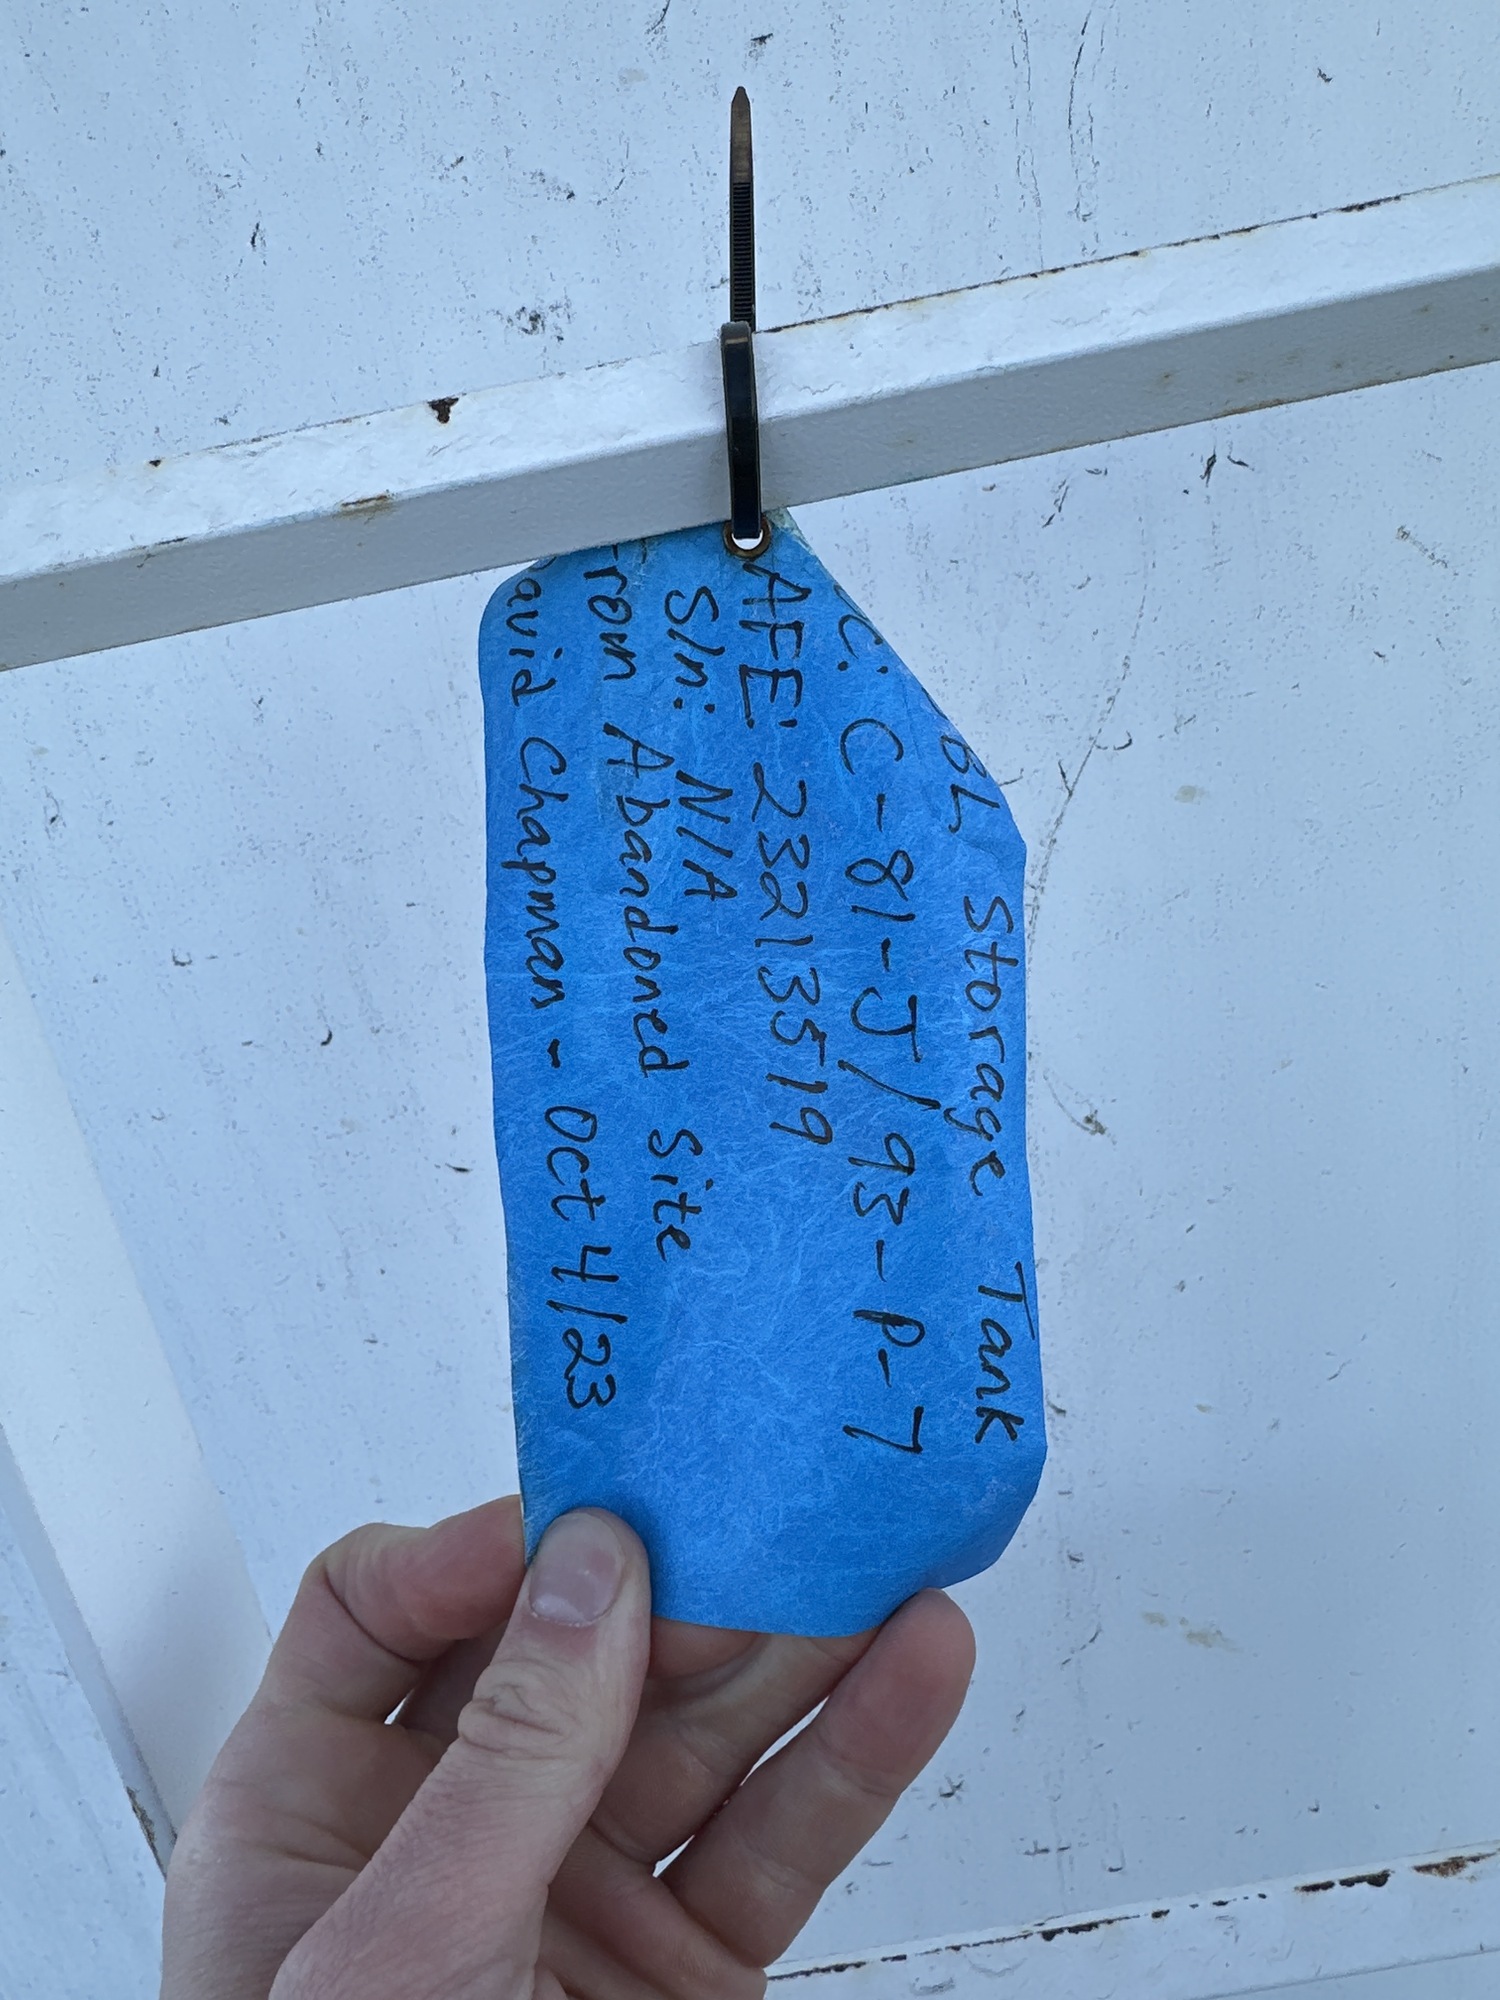 BL Storage Tank
C: C-81-J/93-P-7
AFE: 232135519
S/n: N/A
From Abandoned Site
David Chapman - Oct 4/23